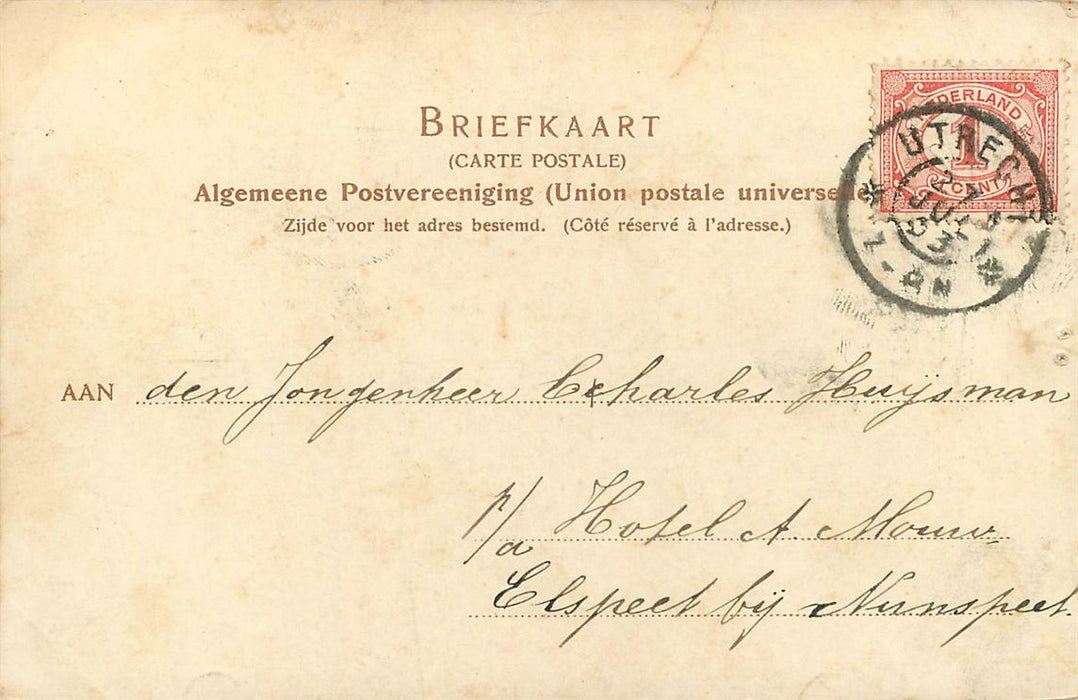 BRIEFKAART
(CARTE POSTALE)
Algemeene Postvereeniging (Union postale universelle)
Zijde voor het adres bestemd. (Côté réservé à l'adresse.)
NEDERLAND
1
CENT
UTRECHT
JUL
03
AAN den Jongenheer Charles Huijsman
p/a Hotel A. Mouw
Elspeet bij Nunspeet.